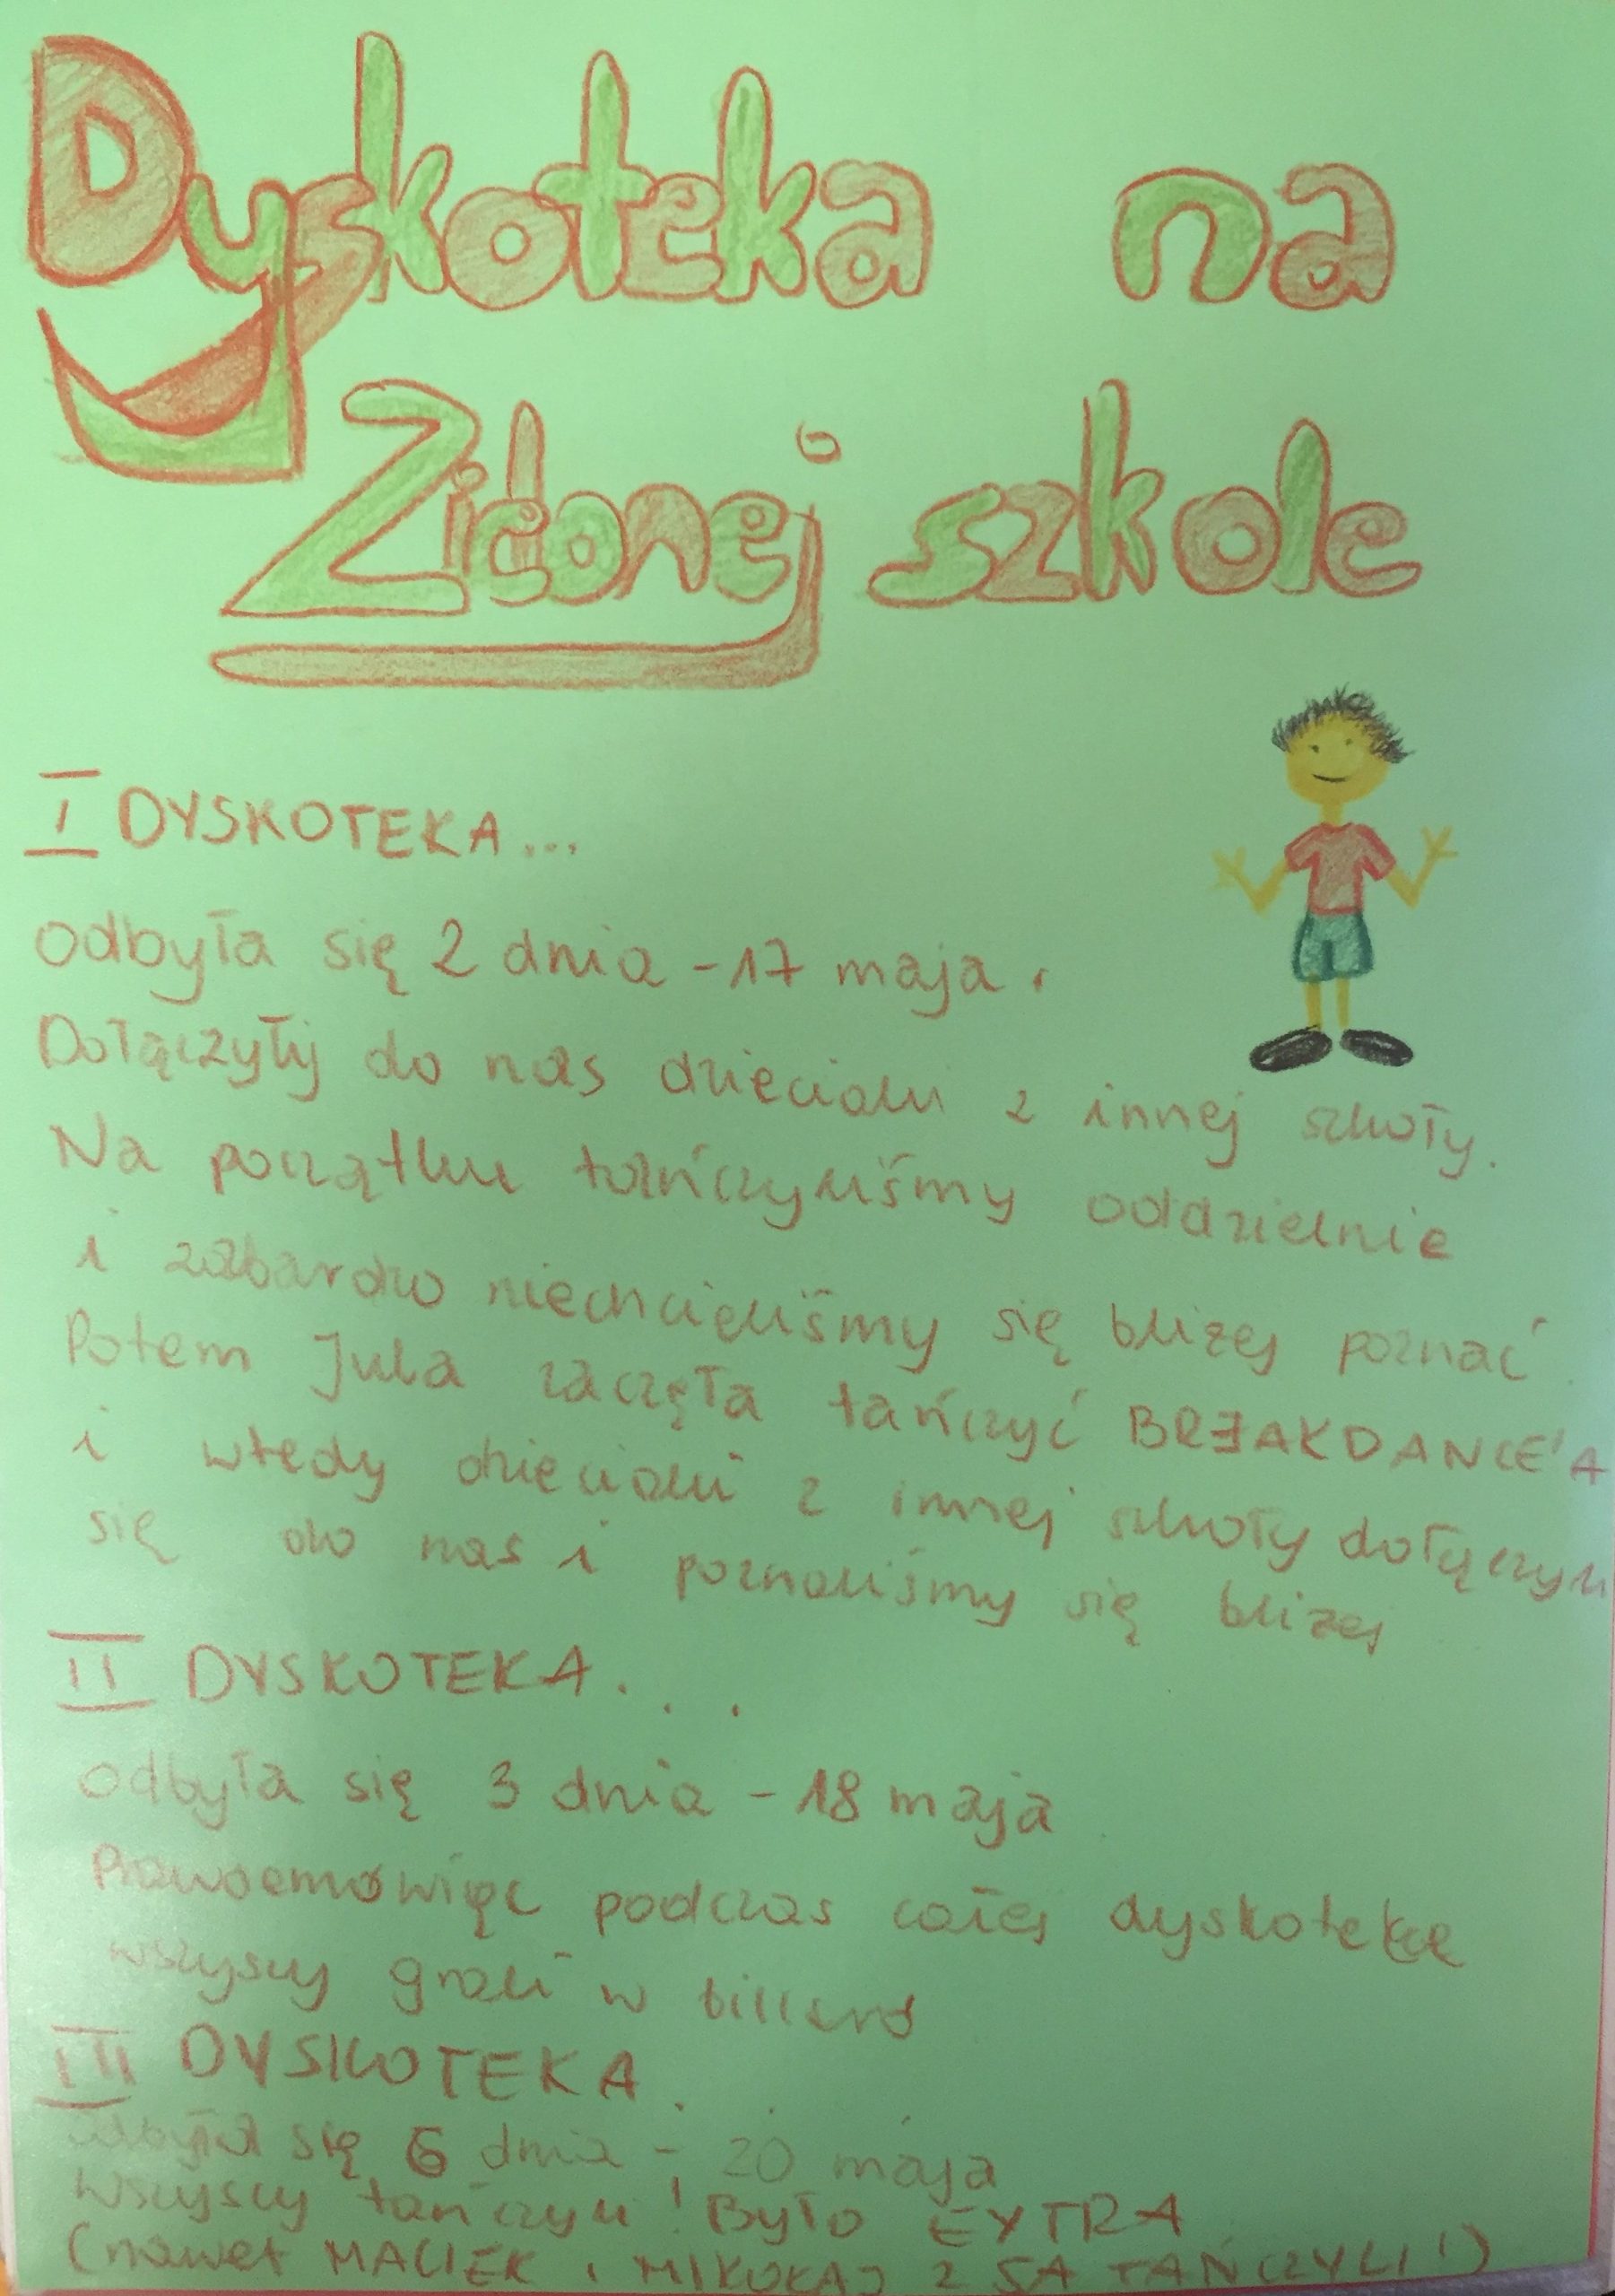 Dyskoteka na
Zielonej szkole
I DYSKOTEKA...
Odbyła się 2 dnia - 17 maja.
Dołączyłły do nas dzieciaki z innej szkoły.
Na początku tańczyliśmy oddzielnie
i zabardzo niechcieliśmy się bliżej poznać.
Potem Jula zaczęła tańczyć BREAKDANCE'A
i wtedy dzieciaki z innej szkoły dołączyli
się do nas i poznaliśmy się bliżej
II DYSKOTEKA...
Odbyła się 3 dnia - 18 maja
Prawdemówiąc podczas całej dyskotekce
wszyscy grali w billard
III DYSKOTEKA...
odbyła się 6 dnia - 20 maja
Wszyscy tańczyli! Było EXTRA
(nawet MACIEK i MIKOŁAJ z 5A TAŃCZYLI!)